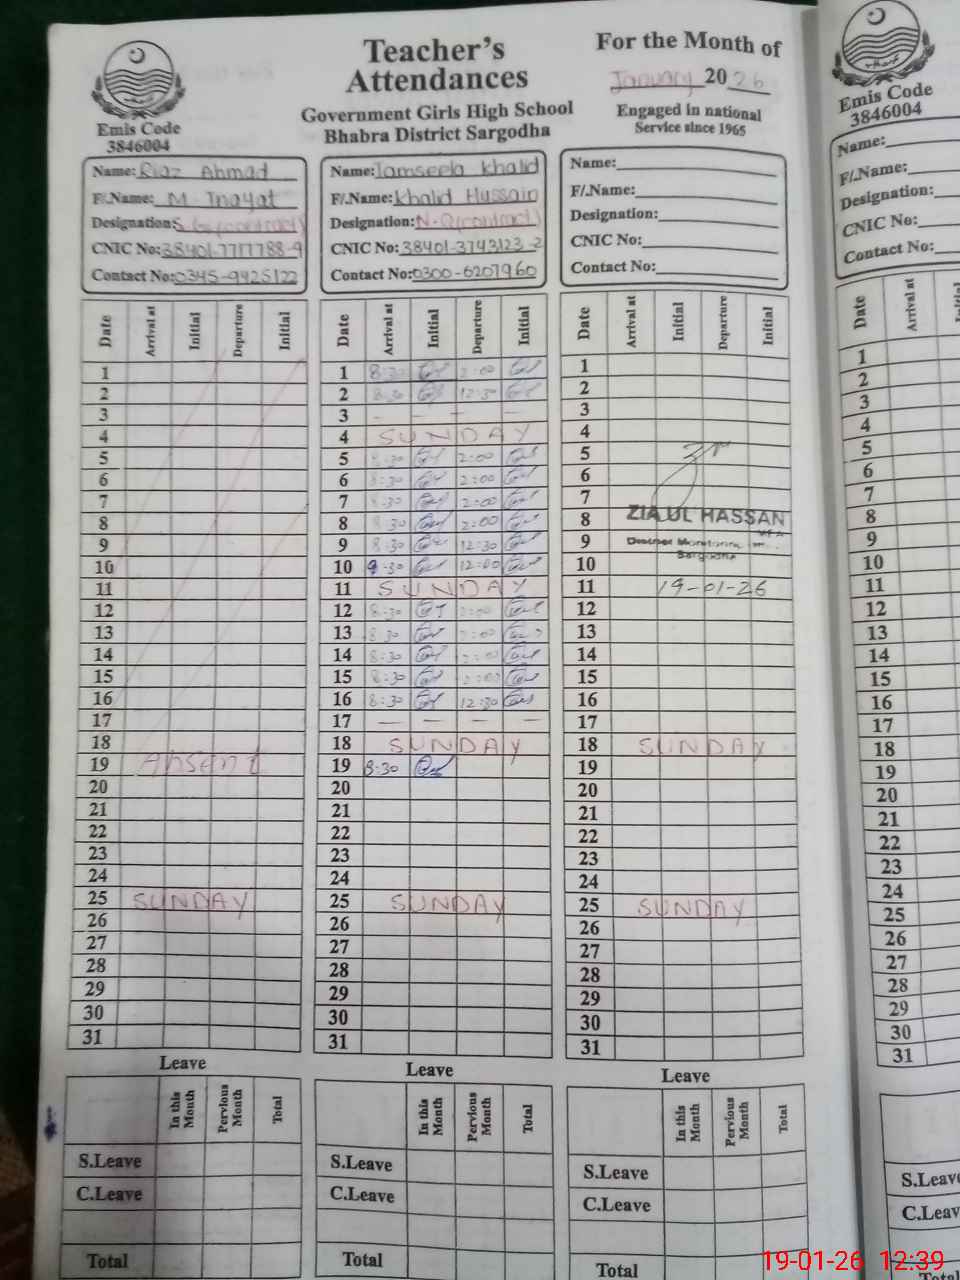 Teacher's
Attendances
Government Girls High School
Bhabra District Sargodha
For the Month of
January 20 26
Engaged in national
Service since 1965
Emis Code
3846004
Name: Riaz Ahmad
F/.Name: M. Inayat
Designation: (contract)
CNIC No: 38401-7717788-9
Contact No: 0345-9425122
Name: Tamseela Khalid
F/.Name: Khalid Hussain
Designation: N-Q(contract)
CNIC No: 38401-3743123-2
Contact No: 0300-6207960
Name:
F/.Name:
Designation:
CNIC No:
Contact No:
Emis Code
3846004
Name:
F/.Name:
Designation:
CNIC No:
Contact No:
Date Arrival at Initial Departure Initial
1
2
3
4
5
6
7
8
9
10
11
12
13
14
15
16
17
18
19 Absent
20
21
22
23
24
25 SUNDAY
26
27
28
29
30
31
Date Arrival at Initial Departure Initial
1 8:30 2:00
2 8:30 12:30
3 — — — —
4 SUNDAY
5 8:30 2:00
6 8:30 2:00
7 8:30 2:00
8 8:30 2:00
9 8:30 12:30
10 9:30 12:00
11 SUNDAY
12 8:30 2:00
13 8:30 2:00
14 8:30 2:00
15 8:30 2:00
16 8:30 12:30
17 — — — —
18 SUNDAY
19 8:30
20
21
22
23
24
25 SUNDAY
26
27
28
29
30
31
Date Arrival at Initial Departure Initial
1
2
3
4
5
6
7
8 ZIA UL HASSAN
9 District Monitoring
10 Sargodha
11 19-01-26
12
13
14
15
16
17
18 SUNDAY
19
20
21
22
23
24
25 SUNDAY
26
27
28
29
30
31
Date Arrival at
1
2
3
4
5
6
7
8
9
10
11
12
13
14
15
16
17
18
19
20
21
22
23
24
25
26
27
28
29
30
31
Leave
In this Month Pervious Month Total
S.Leave
C.Leave
Total
Leave
In this Month Pervious Month Total
S.Leave
C.Leave
Total
Leave
In this Month Pervious Month Total
S.Leave
C.Leave
Total
S.Leave
C.Leav
Total
19-01-26 12:39